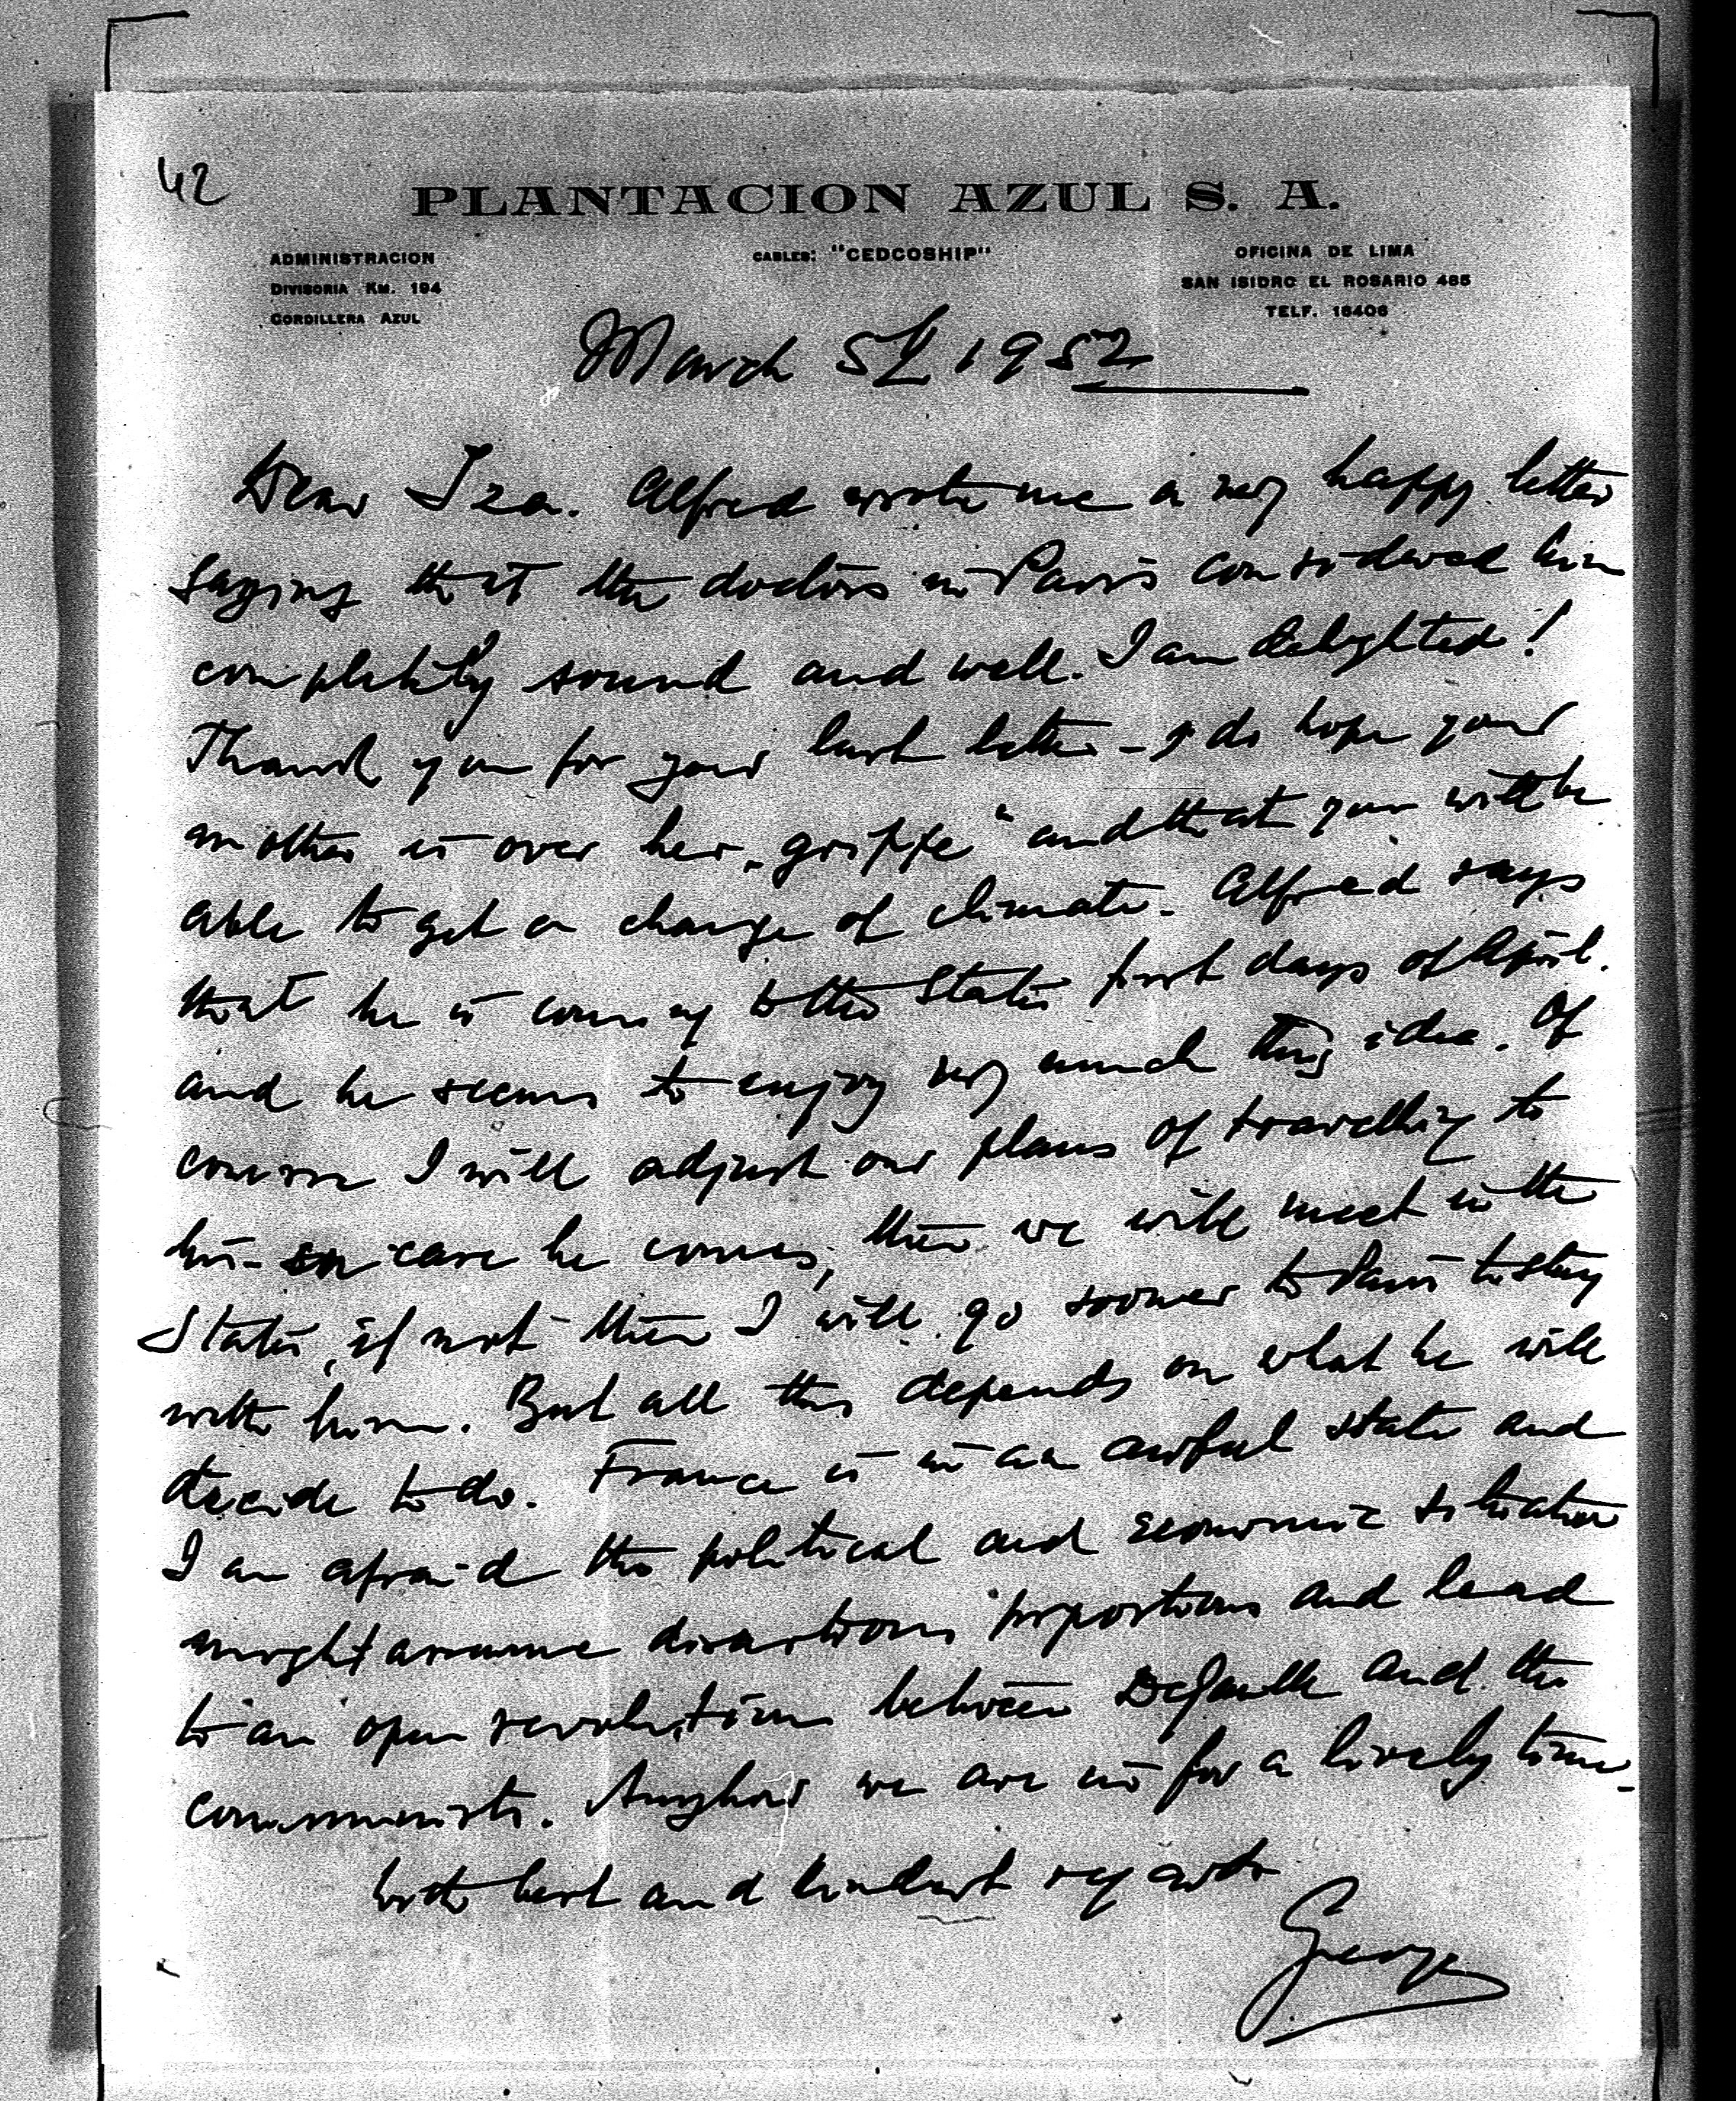 42
PLANTACION AZUL S. A.
ADMINISTRACION
DIVISORIA KM. 194
CORDILLERA AZUL
CABLES: "CEDCOSHIP"
OFICINA DE LIMA
SAN ISIDRO EL ROSARIO 485
TELF. 18406
March 5th 1952
Dear Iza. Alfred wrote me a very happy letter
saying that the doctors in Paris considered him
completely sound and well. I am delighted!
Thank you for your last letter - I do hope your
mother is over her „grippe" and that you will be
able to get a change of climate. Alfred says
that he is coming to the States first days of April.
and he seems to enjoy very much this idea. Of
course I will adjust our plans of travelling to
his - in case he comes, then we will meet in the
States, if not then I will go sooner to Paris to stay
with him. But all this depends on what he will
decide to do. France is in an awful state and
I am afraid the political and economic situation
might assume disastrous proportions and lead
to an open revolution between DeGaulle and the
communists. Anyhow we are in for a lively time.
With best and kindest regards
George